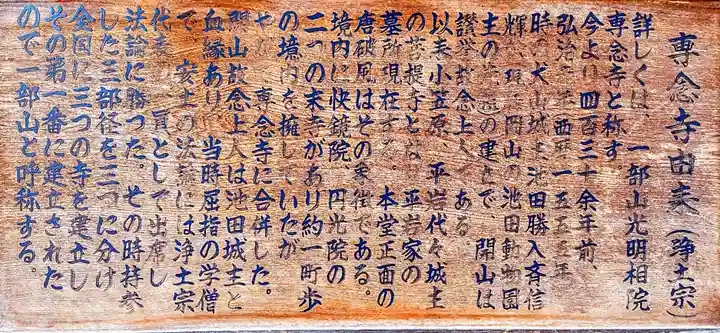 専念寺由来(浄土宗)
詳しくは、一部山光明相院
専念寺と称す
今より四百三十余年前、
弘治 年西暦一五五五年
時の犬山城主池田勝入斉信
輝 現 岡山の池田動物園
主の の建立で、開山は
讃挙故念上人である
以来小笠原、平岩代々城主
の菩提寺となり 平岩家の
墓所現在する。本堂正面の
唐破風はその象徴である。
境内に快鏡院、円光院の
二つの末寺があり約一町歩
の境内を擁していたが
専念寺に合併した。
開山故念上人は池田城主と
血縁あり、当時屈指の学僧
で 安土の法論には浄土宗
代表 員として出席し
法論に勝った その時持参
した三部径を三つに分け
全国に三つの寺を建立し
その第一番に建立された
ので一部山と呼称する。